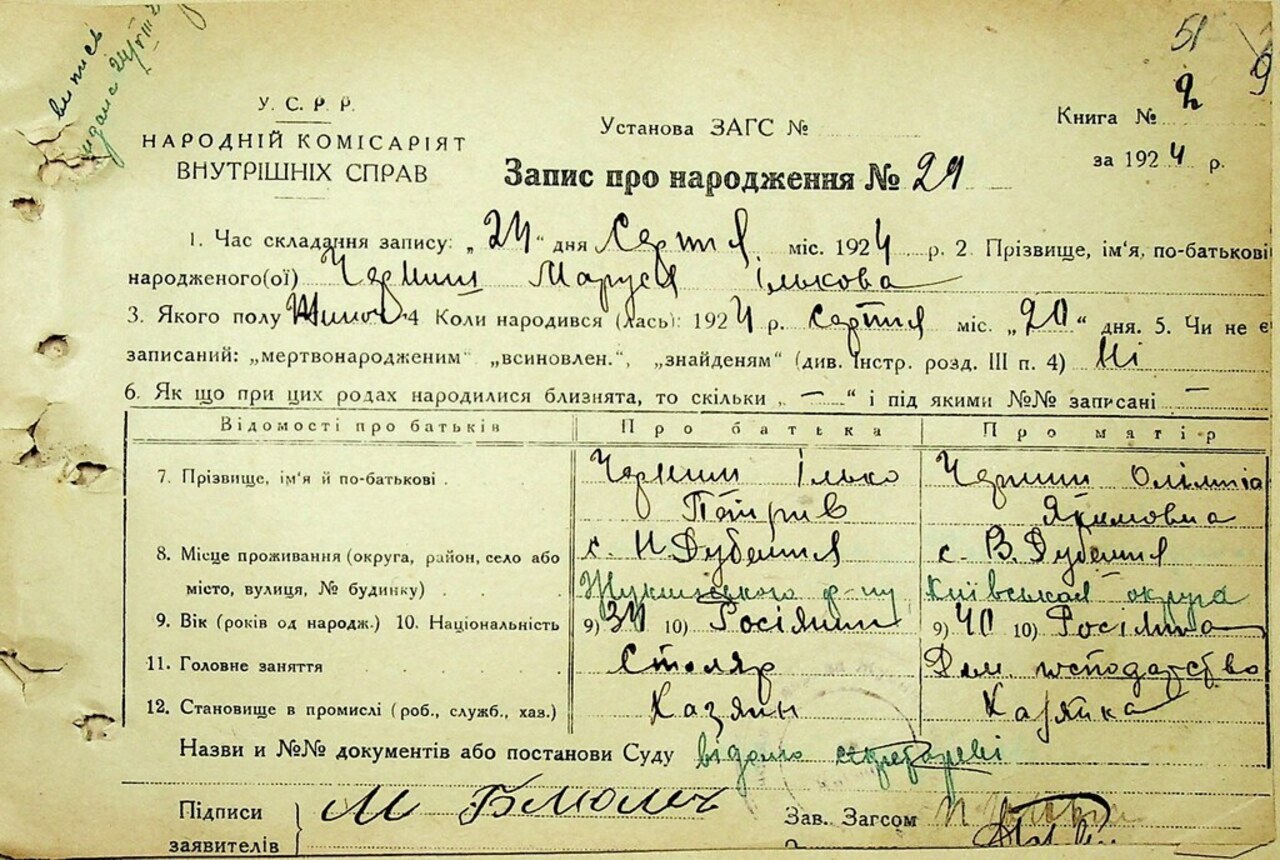 випись
видана 24/VIII
51
9
У. С. Р. Р.
НАРОДНІЙ КОМІСАРІЯТ
ВНУТРІШНІХ СПРАВ
Установа ЗАГС №
Книга № 2
за 1924 р.
Запис про народження № 29
1. Час складання запису: „24“ дня Серпня міс. 1924 р. 2. Прізвище, ім'я, по-батькові
народженого(ої) Черниш Маруся Ількова
3. Якого полу Жиноч. 4 Коли народився (лась): 1924 р. серпня міс. „20“ дня. 5. Чи не є
записаний: „мертвонародженим“ „всиновлен.“, „знайденям“ (див. Інстр. розд. III п. 4) Ні
6. Як що при цих родах народилися близнята, то скільки „ — “ і під якими №№ записані —
Відомості про батьків Про батька Про матір
7. Прізвище, ім'я й по-батькові . Черниш Ілько Черниш Олімпіа
Петрив Якимовна
8. Місце проживання (округа, район, село або с. Н. Дубечня с. В. Дубечня
місто, вулиця, № будинку) . . Жукинського р-ну, Київськая округа
9. Вік (років од народж.) 10. Національність 9) 34 10) Росіянин 9) 40 10) Росіянка
11. Головне заняття Столяр Дом. господарство
12. Становище в промислі (роб., служб., хаз.) Хазяин Хазяйка
Назви и №№ документів або постанови Суду відомо секретареві
Підписи
заявителів
М
Зав. Загсом